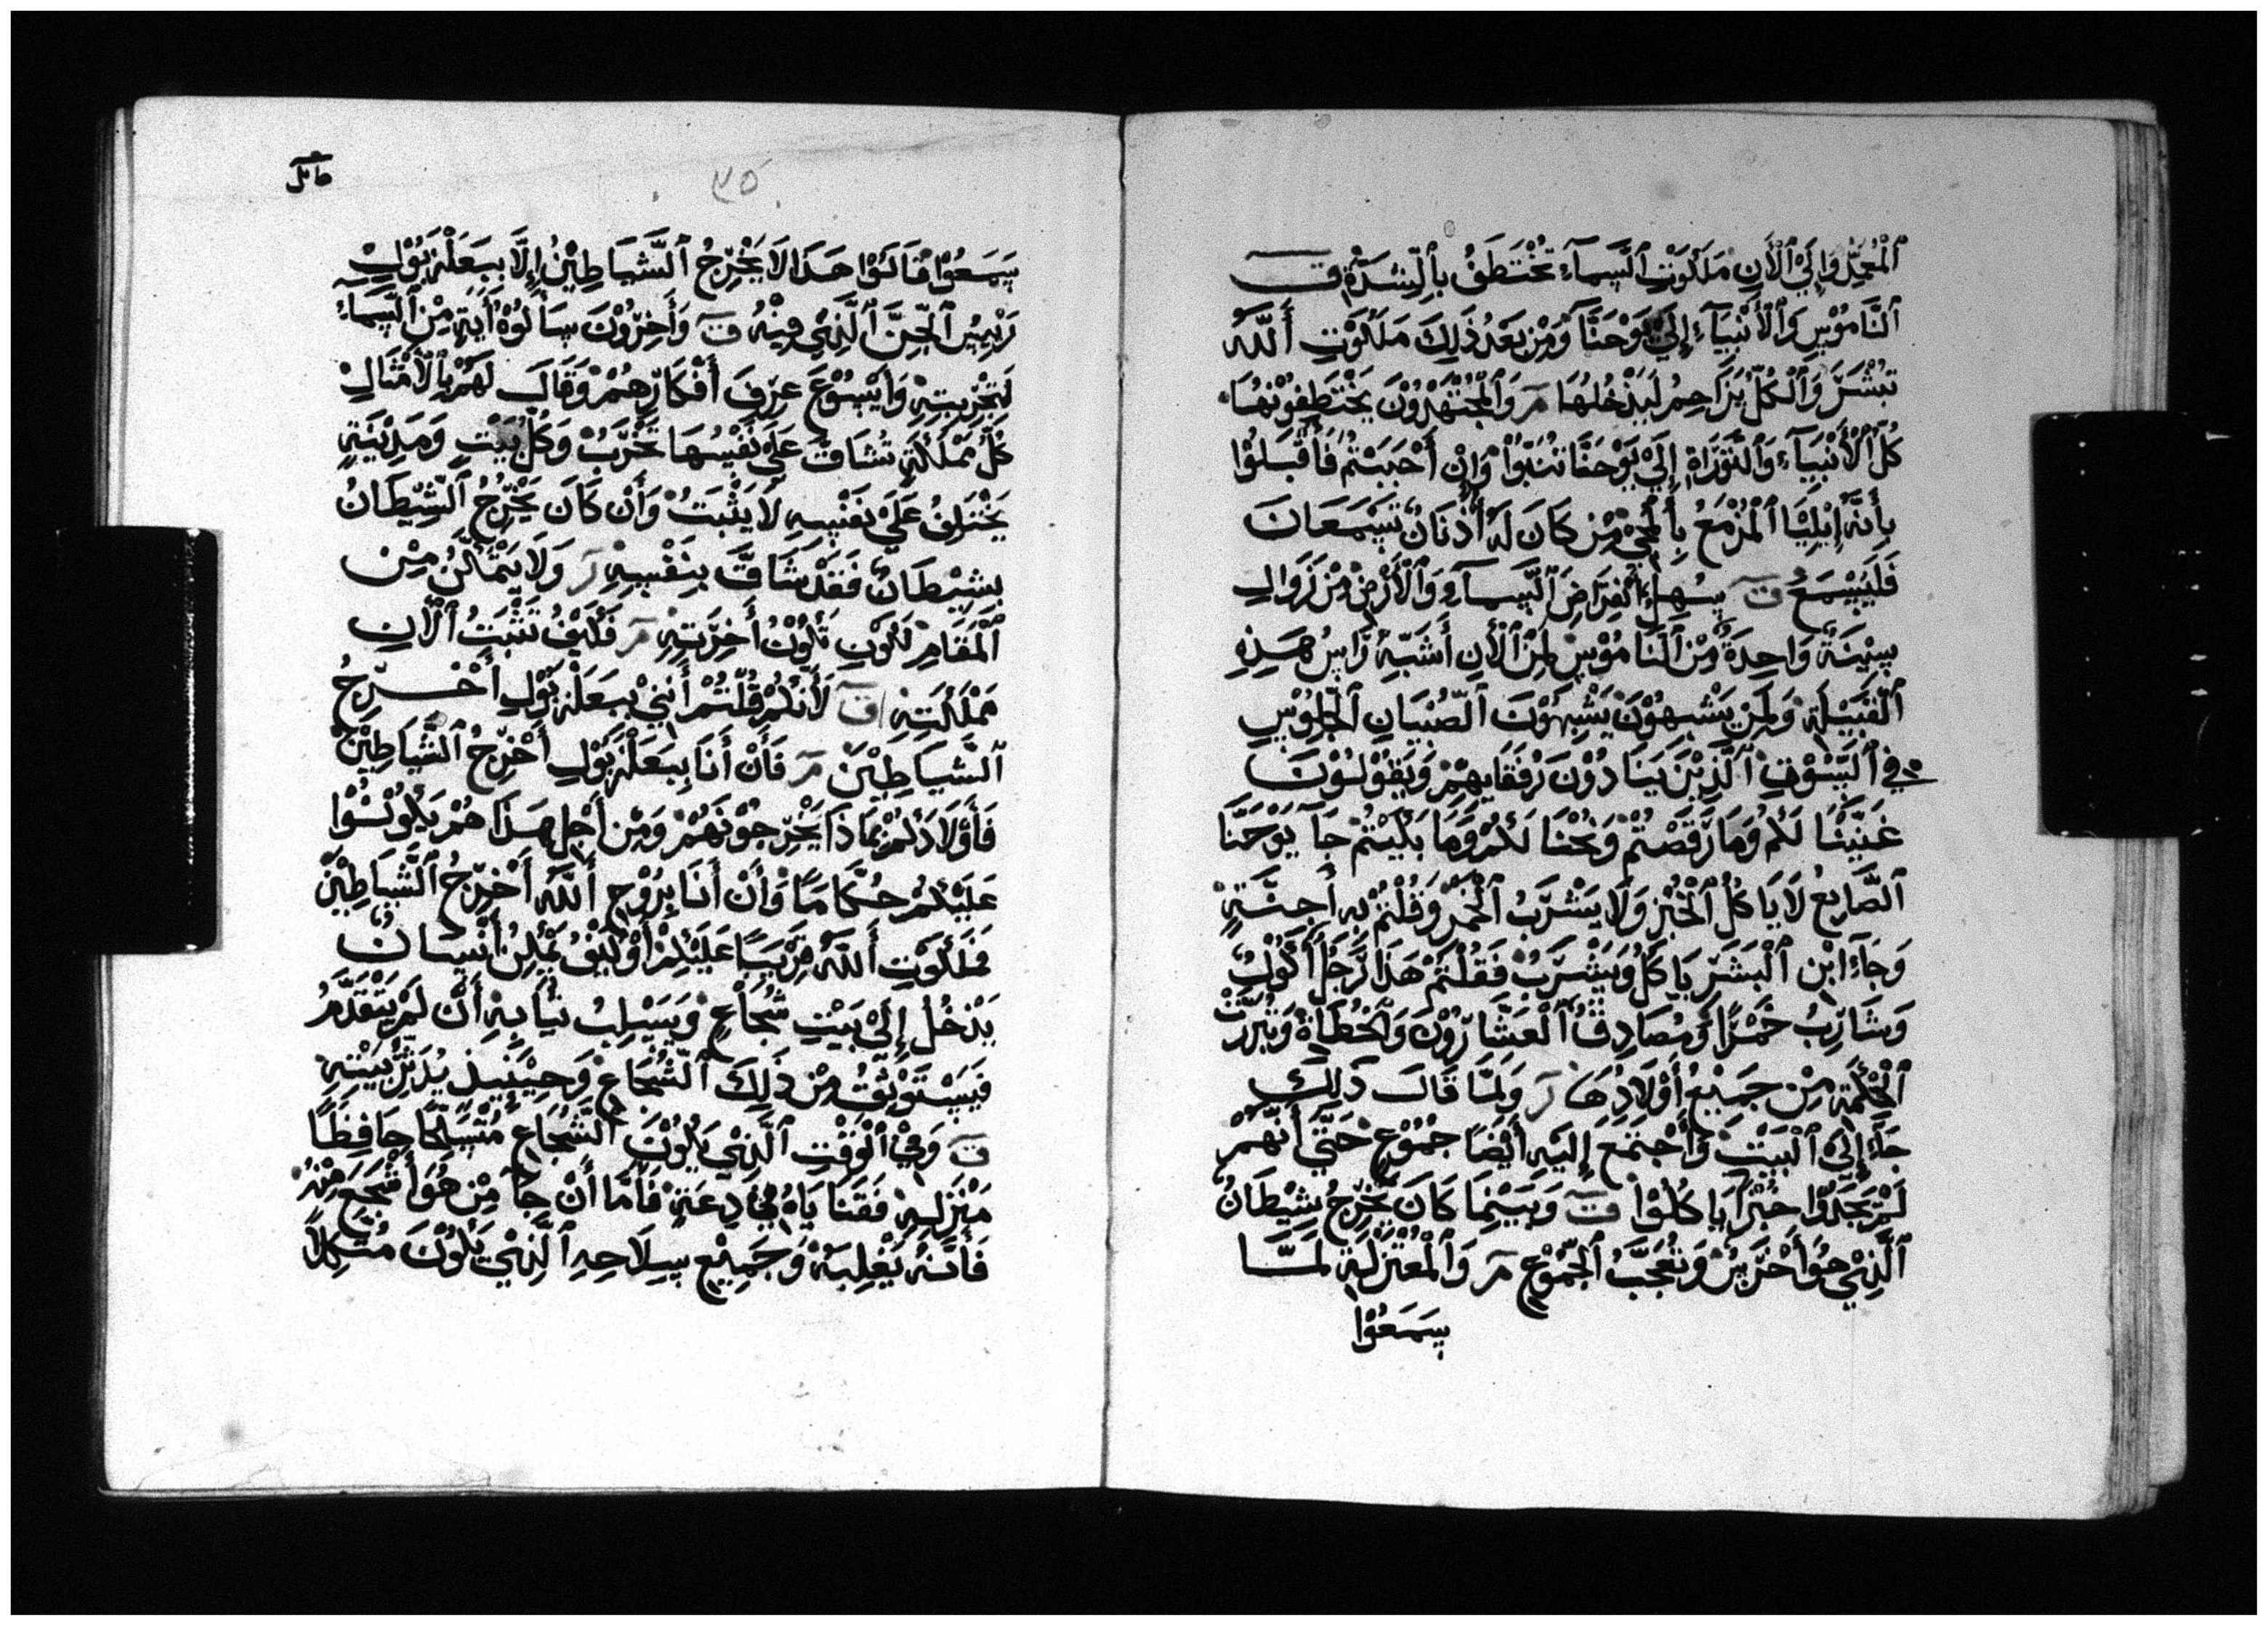 ٱلْمُعَمِّدُ وَإِلَيْ ٱلْأَنِ مَلَكُوْتِ ٱلسَّمَآءِ تُخْتَطَفُ بِٱلشِّدَّةِ ق
ٱلنَّامُوْسِ وَٱلْأَنْبِيَآءِ إِلَيْ يَوْحَنَّا وَمِنْ بَعْدُ ذَلِكَ مَلَكُوْتِ أَللّٰه
تُبْشَرَّ وَٱلْكُلُّ يُزَاحِمُ لِيَدْخُلُهَا مر وَٱلْمُجْتَهِدُوْنَ يَخْتَطِفُوْنَهَا
كُلُّ ٱلْأَنْبِيَآءِ وَٱلتَّوْرَاةِ إِلَيْ يَوْحَنَّا تَنَبَّوْا وَإِنْ أَحْبَبْتُمْ فَأَقْبَلُوْا
بِأَنَّهُ إِيْلِيَّا ٱلْمُزْمَعُ بِأَلْمَجِيْ مِنْ كَانَ لَهُ أُذْنَانٌ تَسْمَعَانَ
فَلْيَسْمَعُ ق سُهِلَ أَنْقِرَاضَ ٱلسَّمَآءِ وَٱلْأَرْضِ مِنْ زَوَالِ
سِيْنَةً وَاحِدَةً مِنْ ٱلْنَامُوْسِ لِمَنِ ٱلْأَنِ أُشَبِّهُ نَاسُ هَذِهِ
ٱلْقَبِيْلَةِ وَلِمَنْ يَشْبِهُوْنَ يَشْبِهُوْنَ ٱلصِّبْيَانِ ٱلْجُلُوْسِ
فِي ٱلسُّوْقِ ٱلَّذِيْنَ يَنَادُوْنَ رُفَقَايِهِمْ وَيَقُوْلُوْنَ
غَنَّيْنَا لَكُمْ وَمَا رَقَصْتُمْ وَنُحْنَا لَكُمْ وَمَا بَكَيْتُمْ جَآ يَوْحَنَّا
ٱلصَّابِغُ لَا يَاكُلُ ٱلْخُبْزِ وَلَا يَشْرَبُ ٱلْخَمْرَ وَقُلْتُمْ بِهِ أَجِنَّةٍ
وَجَآءَ ابْنِ ٱلْبَشَرِ يَاكُلُ وَيَشْرَبُ فَقُلْتُمْ هَذَا رَجُلٌ أَكُوْلٌ
وَشَارِبُ خَمْرًا وَمُصَادِقُ ٱلْعَشَّارُوْنَ وَٱلْخُطَاةِ وَتُبَرَّرَتْ
ٱلْحِكْمَةِ مِنْ جَمِيْعِ أَوْلَادِهَا ر وَلَمَّا قَالَ ذَلِكَ
جَآءَ إِلَيْ ٱلْبَيْتَ وَأَجْتَمَعَ إِلَيْهِ أَيْضًا جُمُوْعٍ حَتَّيْ أَنَّهُمْ
لَمْ يَجِدُوْا خُبْزًا يَاكُلُوْا ق وَبَيْنِمَا كَانَ يُخْرِجُ شِيْطَانُ
ٱلَّذِيْ هُوَ أَخْرَسْ وَتَعَجَّبُ ٱلْجُمُوْعِ مر وَٱلْمُعْتَزِلَةِ لَمَّا
سَمَعُوْا
٣٥
سَمَعُوْا قَالَوْا هَذَا لَا يُخْرِجُ ٱلشَّيَاطِيْنُ إِلَّا بِبَعَلْزَبُوْلِ
رَئِيْسِ ٱلْجِنَّ ٱلَّذِيْ فِيْهِ ق وَأَخِرُوْنَ سَأَلُوْهُ أَيَةٍ مِنَ ٱلسَّمَآءِ
لِتَجْرِبِتِهِ وَأَيْسُوْعَ عِرِفَ أَفْكَارِهُمْ وَقَالَ لَهُمْ بِٱلْأَمْثَالِ
كُلُّ مَمْلَكَةِ تُشَاقَّ عَلَيْ نَفْسِهَا تَخْرَبُ وَكُلُّ بَيْتٍ وَمَدِيْنَةٍ
يَخْتَلِفُ عَلَيْ نَفْسِهِ لَا يَثْبَتُ وَأَنْ كَانَ يُخْرِجُ ٱلشِّيْطَانُ
بِشِيْطَانٌ فَقَدْ شَاقَّ بِنَفْسِهِ ر وَلَا يَتْمَكَّنُ مِنْ
ٱلْمَقَامِ لَكُوْنِ تَكُوْنُ أَخِرَتِهِ مر فَكَيْفُ تَثْبَتُ ٱلْأَنِ
مَمْلَكَتِهِ ق لَأَنَّكُمْ قُلْتُمْ أَنِيْ بِبَعَلْزَبُوْلِ أُخْرِجُ
ٱلشَّيَاطِيْنَ مر فَأَنْ أَنَا بِبَعَلْزَبُوْلِ أُخْرِجُ ٱلشَّيَاطِيْنَ
فَأَوْلَادَكُمْ بِمَاذَا يُخْرِجُوْنَهُمْ وَمِنْ أَجْلِ هَذَا هُمْ يَكُوْنُوْا
عَلَيْكُمْ حُكَّامًا وَأَنْ أَنَا بِرُوْحِ أَللّٰه أُخْرِجُ ٱلشَّيَاطِيْنَ
فَمَلَكُوْتِ أَللّٰه قَرِيْبًا عَلَيْكُمْ أَوْ كَيْفُ يُمْكِنُ أَنْسَانٌ
يَدْخُلُ إِلَيْ بَيْتِ شُجَاعٍ وَيَسْلِبُ ثِيَابِهِ أَنْ لَمْ يَتَقَدَّمُ
فَيَسْتَوْثِقُ مِنْ ذَلِكَ ٱلشُّجَاعِ وَحِيْنَيْذِ يُدَبِّرُ بَيْتِهِ
ق وَفِيْ ٱلْوَقْتِ ٱلَّذِيْ يَكُوْنَ ٱلشُّجَاعَ مُتْسَلِّحًا حَافِظًا
مَنْزِلِهِ فَقَنَايَاهُ فِيْ دِعَةٍ فَأَمَّا أَنْ جَآ مِنْ هُوَ أَشْجَعَ مِنْهُ
فَأَنَّهُ يَغْلِبَهُ وَجَمِيْعِ سِلَاحِهِ ٱلَّذِيْ يَكُوْنَ مُتَّكِلًا